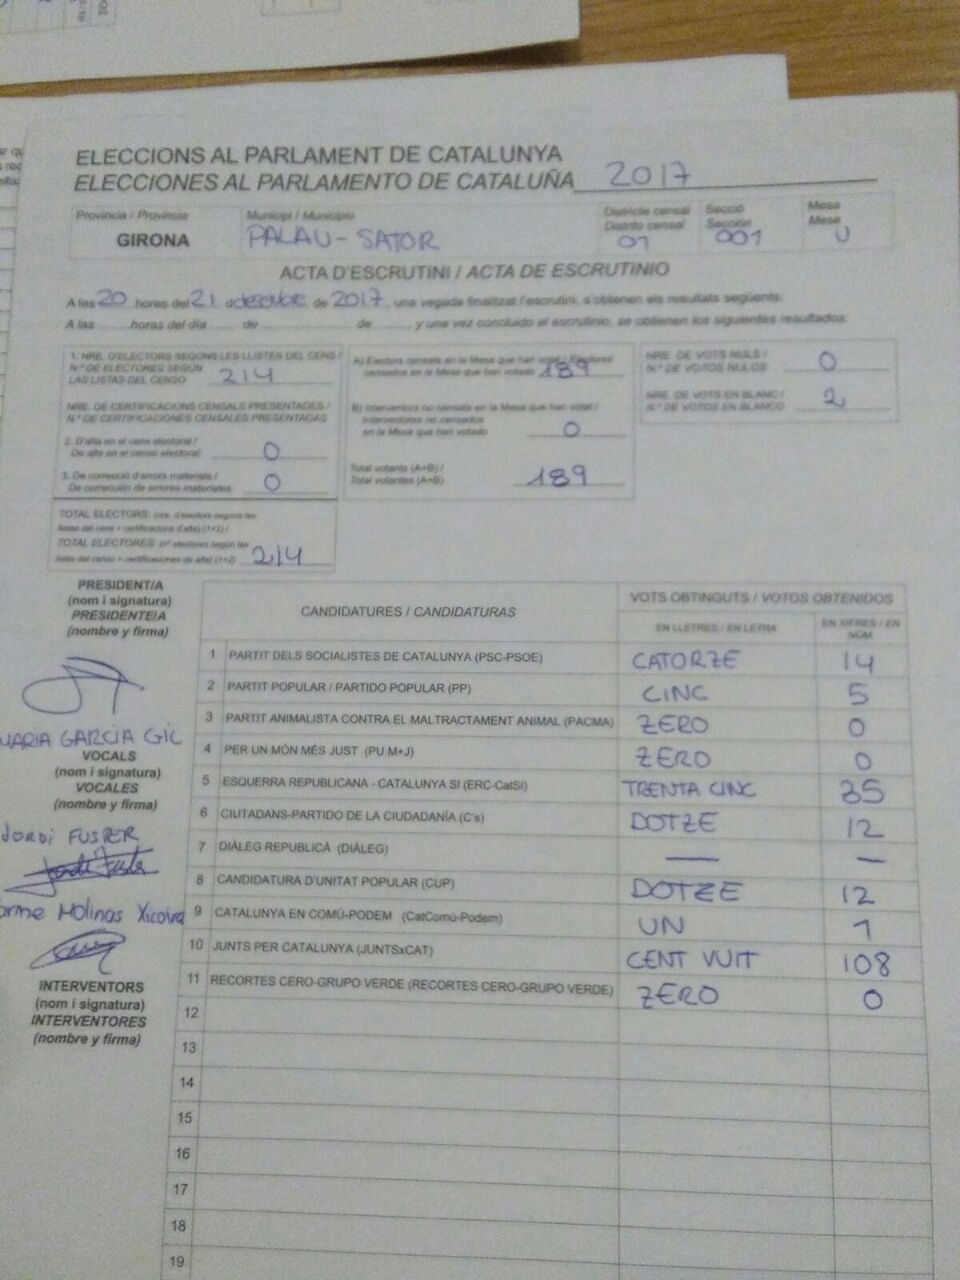 ELECCIONS AL PARLAMENT DE CATALUNYA
ELECCIONES AL PARLAMENTO DE CATALUÑA 2017
Provincia / Provincia
GIRONA
Municipi / Municipio
PALAU-SATOR
Districte censal
Distrito censal
01
Secció
Sección
001
Mesa
Mesa
U
ACTA D'ESCRUTINI / ACTA DE ESCRUTINIO
A les 20 hores del 21 de 2017, una vegada finalitzat l'escrutini, s'obtenen els resultats següents:
A las horas del día de de , y una vez concluido el escrutinio, se obtienen los siguientes resultados:
1. NRE. D'ELECTORS SEGONS LES LLISTES DEL CENS /
N.º DE ELECTORES SEGÚN
LAS LISTAS DEL CENSO 214
NRE. DE CERTIFICACIONS CENSALS PRESENTADES /
N.º DE CERTIFICACIONES CENSALES PRESENTADAS
2. D'alta en el cens electoral /
De alta en el censo electoral: 0
3. De correcció d'errors materials /
De corrección de errores materiales: 0
TOTAL ELECTORS: (nre. d'electors segons les
llistes del cens + certificacions d'alta) (1+2) /
TOTAL ELECTORES: (nº electores según las
listas del censo + certificaciones de alta) (1+2) 214
A) Electors censats en la Mesa que han votat / Electores
censados en la Mesa que han votado 189
B) Interventors no censats en la Mesa que han votat /
Interventores no censados
en la Mesa que han votado 0
Total votants (A+B) /
Total votantes (A+B) 189
NRE. DE VOTS NULS /
N.º DE VOTOS NULOS 0
NRE. DE VOTS EN BLANC /
N.º DE VOTOS EN BLANCO 2
PRESIDENT/A
(nom i signatura)
PRESIDENTE/A
(nombre y firma)
MARIA GARCIA GIL
VOCALS
(nom i signatura)
VOCALES
(nombre y firma)
JORDI FUSTER
Molinas Xicoira
INTERVENTORS
(nom i signatura)
INTERVENTORES
(nombre y firma)
CANDIDATURES / CANDIDATURAS
VOTS OBTINGUTS / VOTOS OBTENIDOS
EN LLETRES / EN LETRA
EN XIFRES / EN
NÚM
1 PARTIT DELS SOCIALISTES DE CATALUNYA (PSC-PSOE) CATORZE 14
2 PARTIT POPULAR / PARTIDO POPULAR (PP) CINC 5
3 PARTIT ANIMALISTA CONTRA EL MALTRACTAMENT ANIMAL (PACMA) ZERO 0
4 PER UN MÓN MÉS JUST (PU M+J) ZERO 0
5 ESQUERRA REPUBLICANA - CATALUNYA SI (ERC-CatSí) TRENTA CINC 35
6 CIUTADANS-PARTIDO DE LA CIUDADANÍA (C's) DOTZE 12
7 DIÀLEG REPUBLICÀ (DIÀLEG) — —
8 CANDIDATURA D'UNITAT POPULAR (CUP) DOTZE 12
9 CATALUNYA EN COMÚ-PODEM (CatComú-Podem) UN 1
10 JUNTS PER CATALUNYA (JUNTSxCAT) CENT VUIT 108
11 RECORTES CERO-GRUPO VERDE (RECORTES CERO-GRUPO VERDE) ZERO 0
12
13
14
15
16
17
18
19